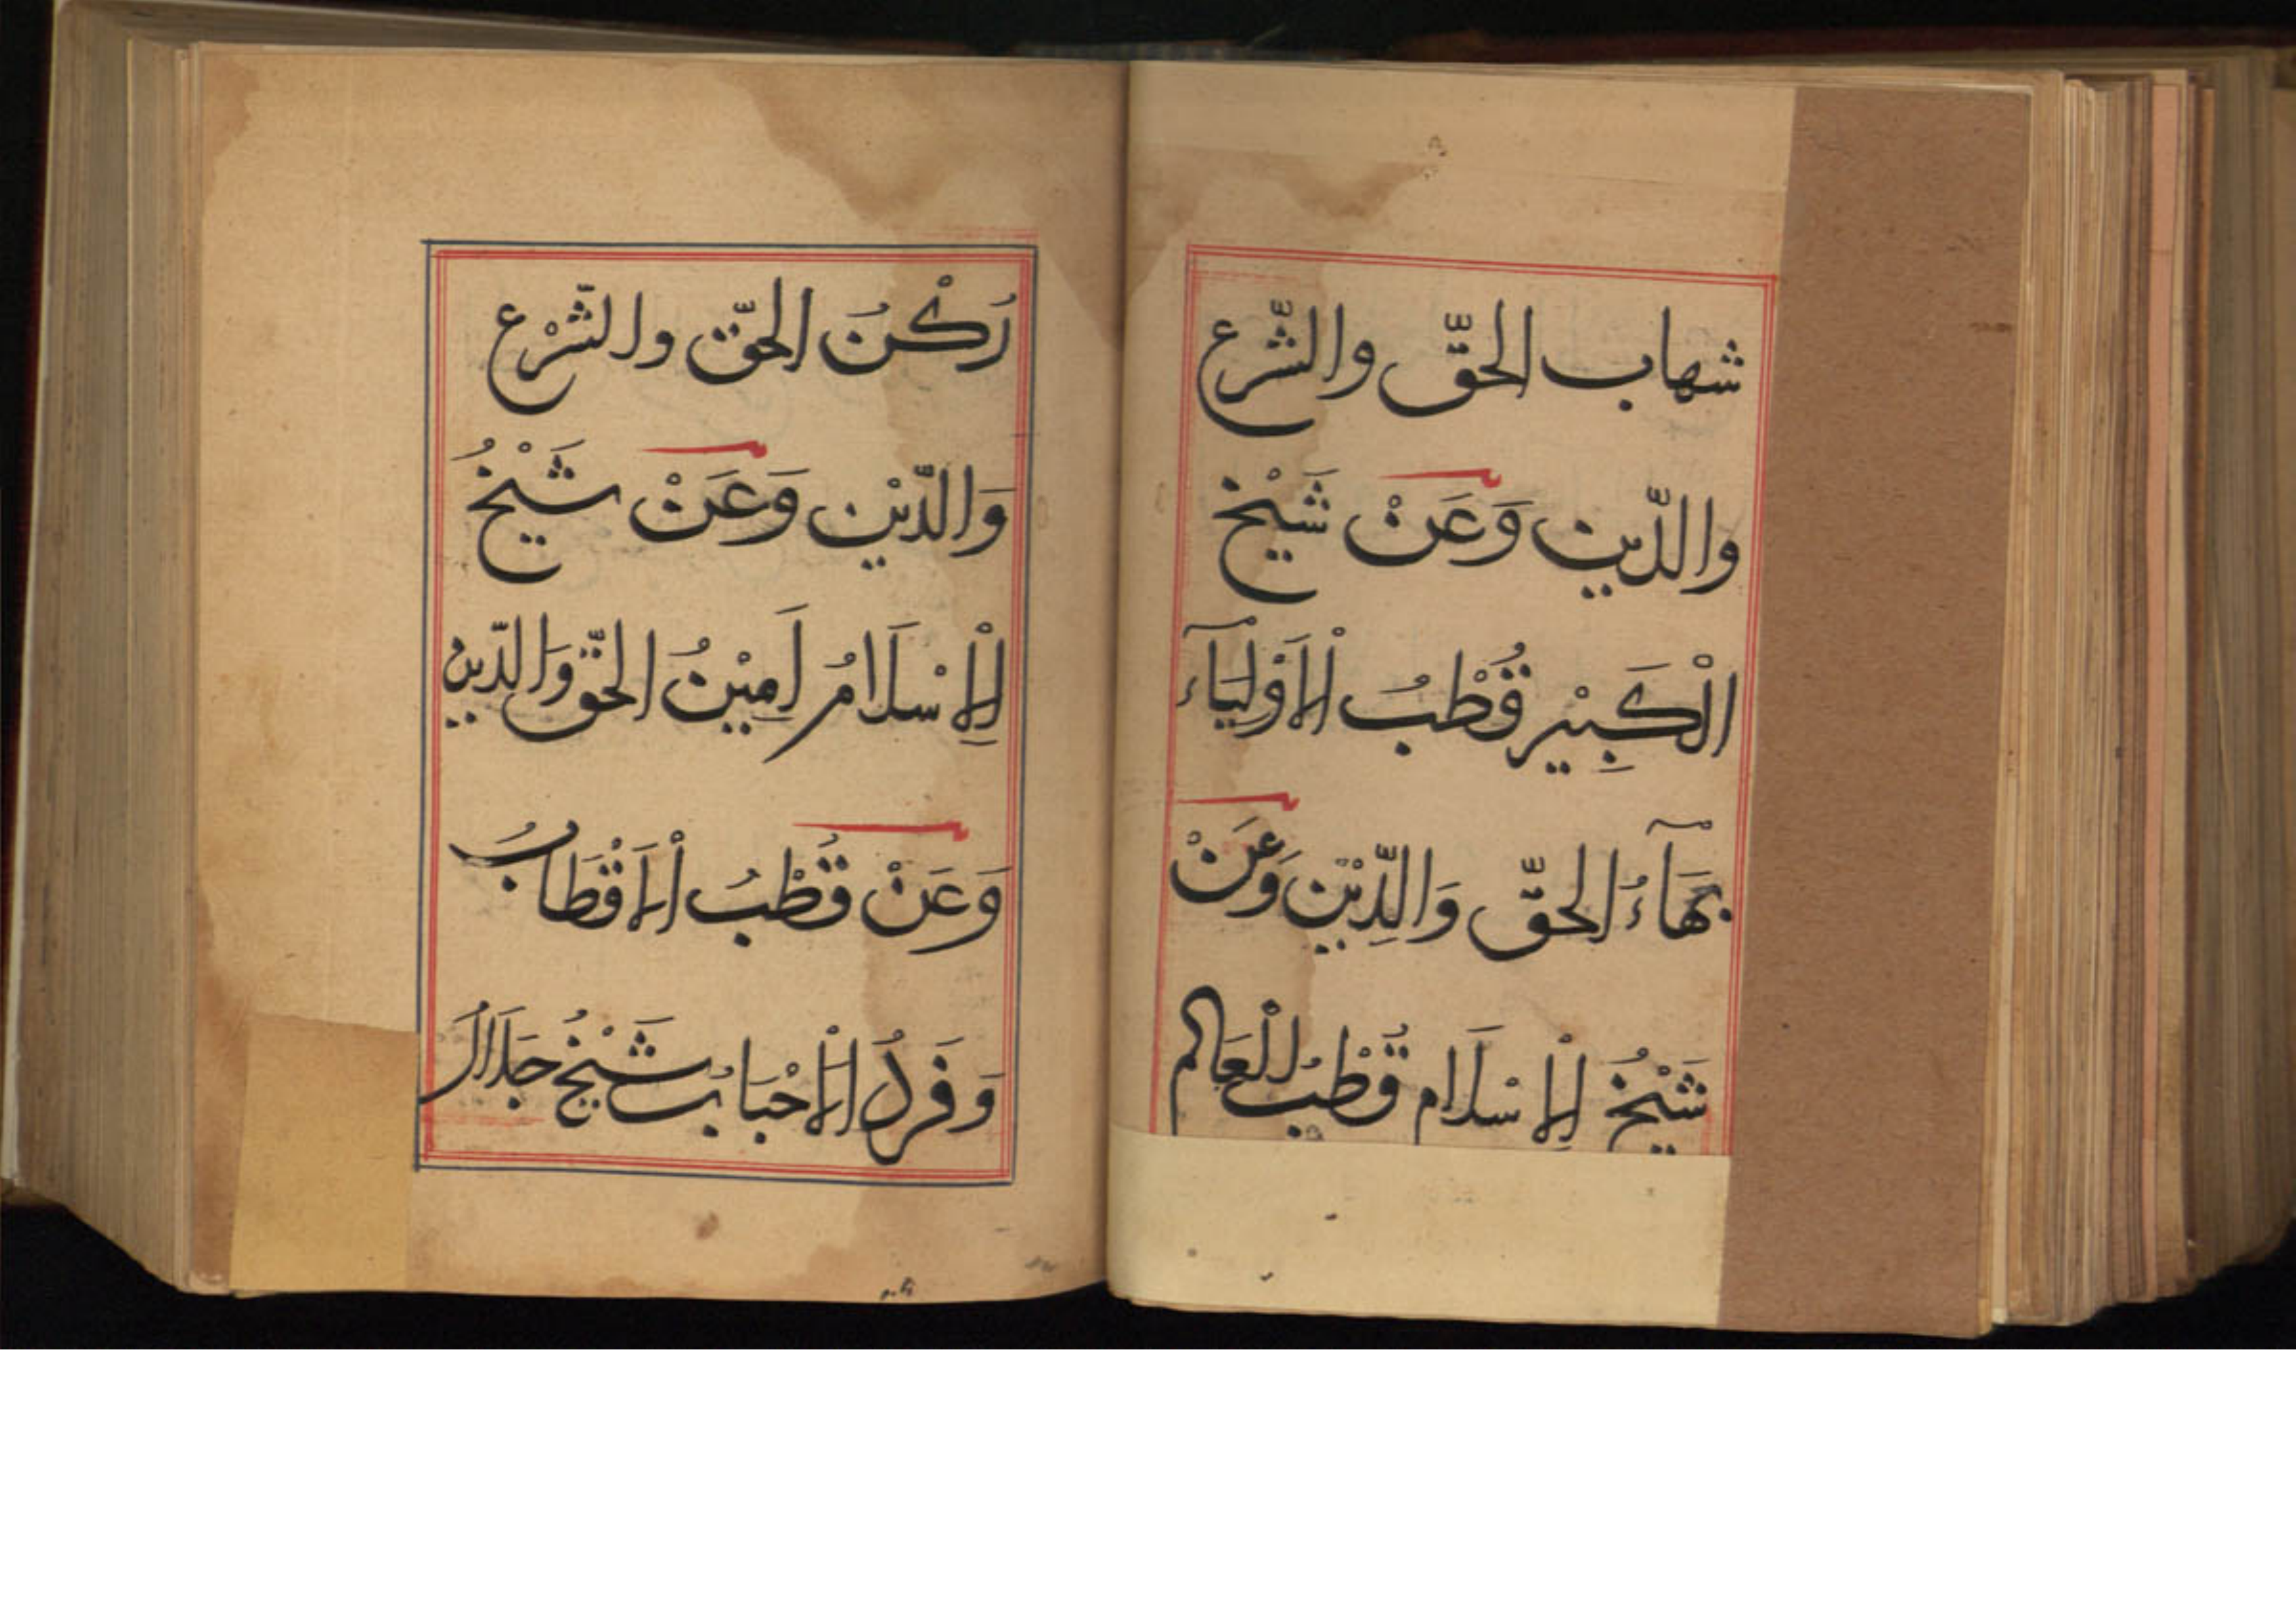 شهاب الحقّ والشّرع
والدّين وَعَنْ شَيْخ
الْكَبِيْر قُطْبُ الْاَوْلِيَآء
بَهَآءُ الحقّ وَالدِّيْن وَعَنْ
شَيْخُ الْاِسْلَام قُطْبُ الْعَالم
رُكْنُ الحقّ والشّرْع
وَالدّيْن وَعَنْ شَيْخُ
الْاِسْلَامُ اَمِيْنُ الحقّ وَالدّين
وَعَنْ قُطْبُ الْاَقْطَابُ
وَفَردُ الْاَحْبَابُ شَيْخُ جَلَالُ